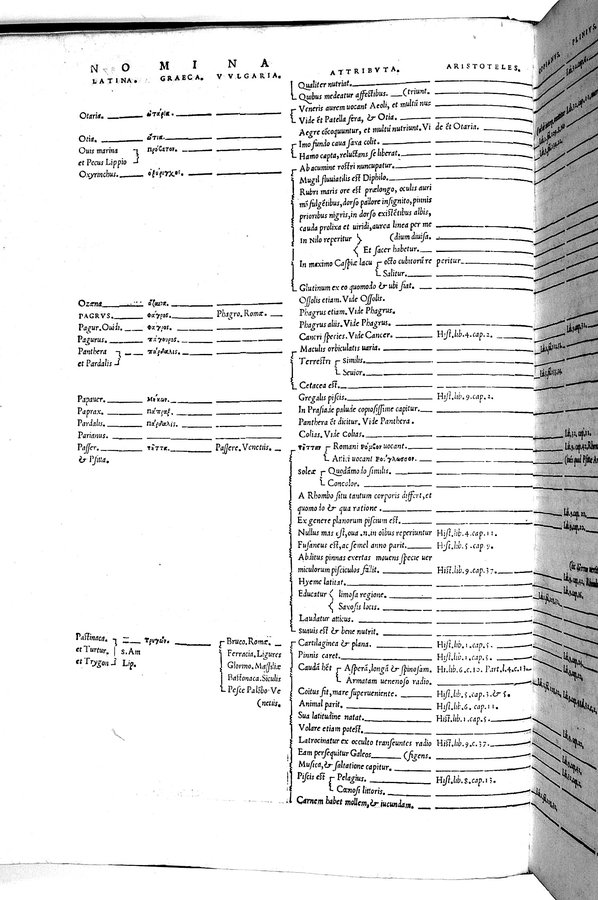 NOMINA
LATINA. GRAECA. VVLGARIA. ATTRIBVTA. ARISTOTELES.
Qualiter nutriat.
Quibus medeatur affectibus. (triunt.
Otaria. ὠτάρια. Veneris aurem uocant Aeoli, et multũ nus
Vide & Patella fera, & Otia.
Otia. ὠτία. Aegre cõcoquuntur, et multũ nutriunt. Vi de & Otaria.
Ouis marina πρόβατον. Imo fundo caua saxa colit.
et Pecus Lippio Hamo capta, reluctans se liberat.
Oxyrinchus. ὀξύριγχοι. Ab acumine rostri nuncupatur.
Mugil fluuiatilis est Diphilo.
Rubri maris ore est prælongo, oculis auri
mõ fulgẽtibus, dorso pallore insignito, pinnis
prioribus nigris, in dorso existẽtibus albis,
cauda prolixa et uiridi, aurea linea per me
In Nilo reperitur (dium diuisa.
Et sacer habetur.
In maximo Caspiæ lacu octo cubitorũ re peritur
Salitur.
Glutinum ex eo quomodo & ubi fiat.
Ozæna Ossolis etiam. Vide Ossolis.
PAGRVS. φάγρος. Phagro. Romæ. Phagrus etiam. Vide Phagrus.
Pagur. Ouidi. φάγρος. Phagrus aliis. Vide Phagrus.
Pagurus. πάγουρος. Cancri species. Vide Cancer. Hist. lib. 4. cap. 2.
Panthera πάρδαλις. Maculis orbiculatis uaria.
et Pardalis Terrestri similis.
Seuior.
Cetacea est.
Papauer. Gregalis piscis. Hist. lib. 9. cap. 2.
Paprax. πάπραξ. In Prasiade palude copiosissime capitur.
Pardalis. πάρδαλις. Panthera & dicitur. Vide Panthera.
Parianus. Colias. Vide Colias.
Passer. ψῆττα. Passere. Venetiis. Romani uocant.
& Psitta. Attici uocant βούγλωσσον.
soleæ Quodãmo lo similis.
Concolor.
A Rhombo situ tantum corporis differt, et
quomo lo & qua ratione.
Ex genere planorum piscium est.
Nullus mas est, oua .n. in oĩbus reperiuntur Hist. lib. 4. cap. 11.
Fusaneus est, ac semel anno parit. Hist. lib. 5. cap. 9.
Abditus pinnas exertas mouens specie uer
miculorum pisciculos fallit. Hist. lib. 9. cap. 37.
Hyeme latitat.
Educatur limosa regione.
Saxosis locis.
Laudatur atticus.
suauis est & bene nutrit.
Pastinaca. τρυγών. Bruco. Romæ. Cartilaginea & plana. Hist. lib. 1. cap. 5.
et Turtur. s. Am Ferracia. Ligures Pinnis caret. Hist. lib. 1. cap. 5.
et Trygon Lip. Glormo. Massiliæ Caudã hẽt Asperã, longã & spinosam. Hi. lib. 6. c. 10. Part. l. 4. c. 13.
Battonaca. Siculis Armatam uenenoso radio.
Pesce Palõbo Ve Coitus fit, mare superueniente. Hist. lib. 5. cap. 3. & 5.
(netiis. Animal parit. Hist. lib. 6. cap. 11.
Sua latitudine natat. Hist. lib. 1. cap. 5.
Volare etiam potest.
Latrocinatur ex occulto transeuntes radio Hist. lib. 9. c. 37.
Eam persequitur Galeos. (figens.
Musica, & saltatione capitur.
Piscis est Pelagius. Hist. lib. 8. cap. 13.
Cœnosi littoris.
Carnem habet mollem, & iucundam.